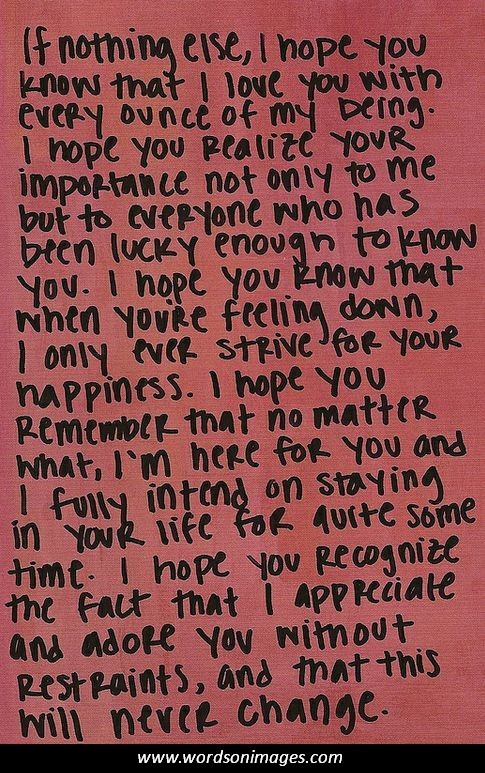 If nothing else, I hope you
know that I love you with
every ounce of my being.
I hope you realize your
importance not only to me
but to everyone who has
been lucky enough to know
you. I hope you know that
when you're feeling down,
I only ever strive for your
happiness. I hope you
remember that no matter
what, I'm here for you and
I fully intend on staying
in your life for quite some
time. I hope you recognize
the fact that I appreciate
and adore you without
restraints, and that this
will never change.
www.wordsonimages.com